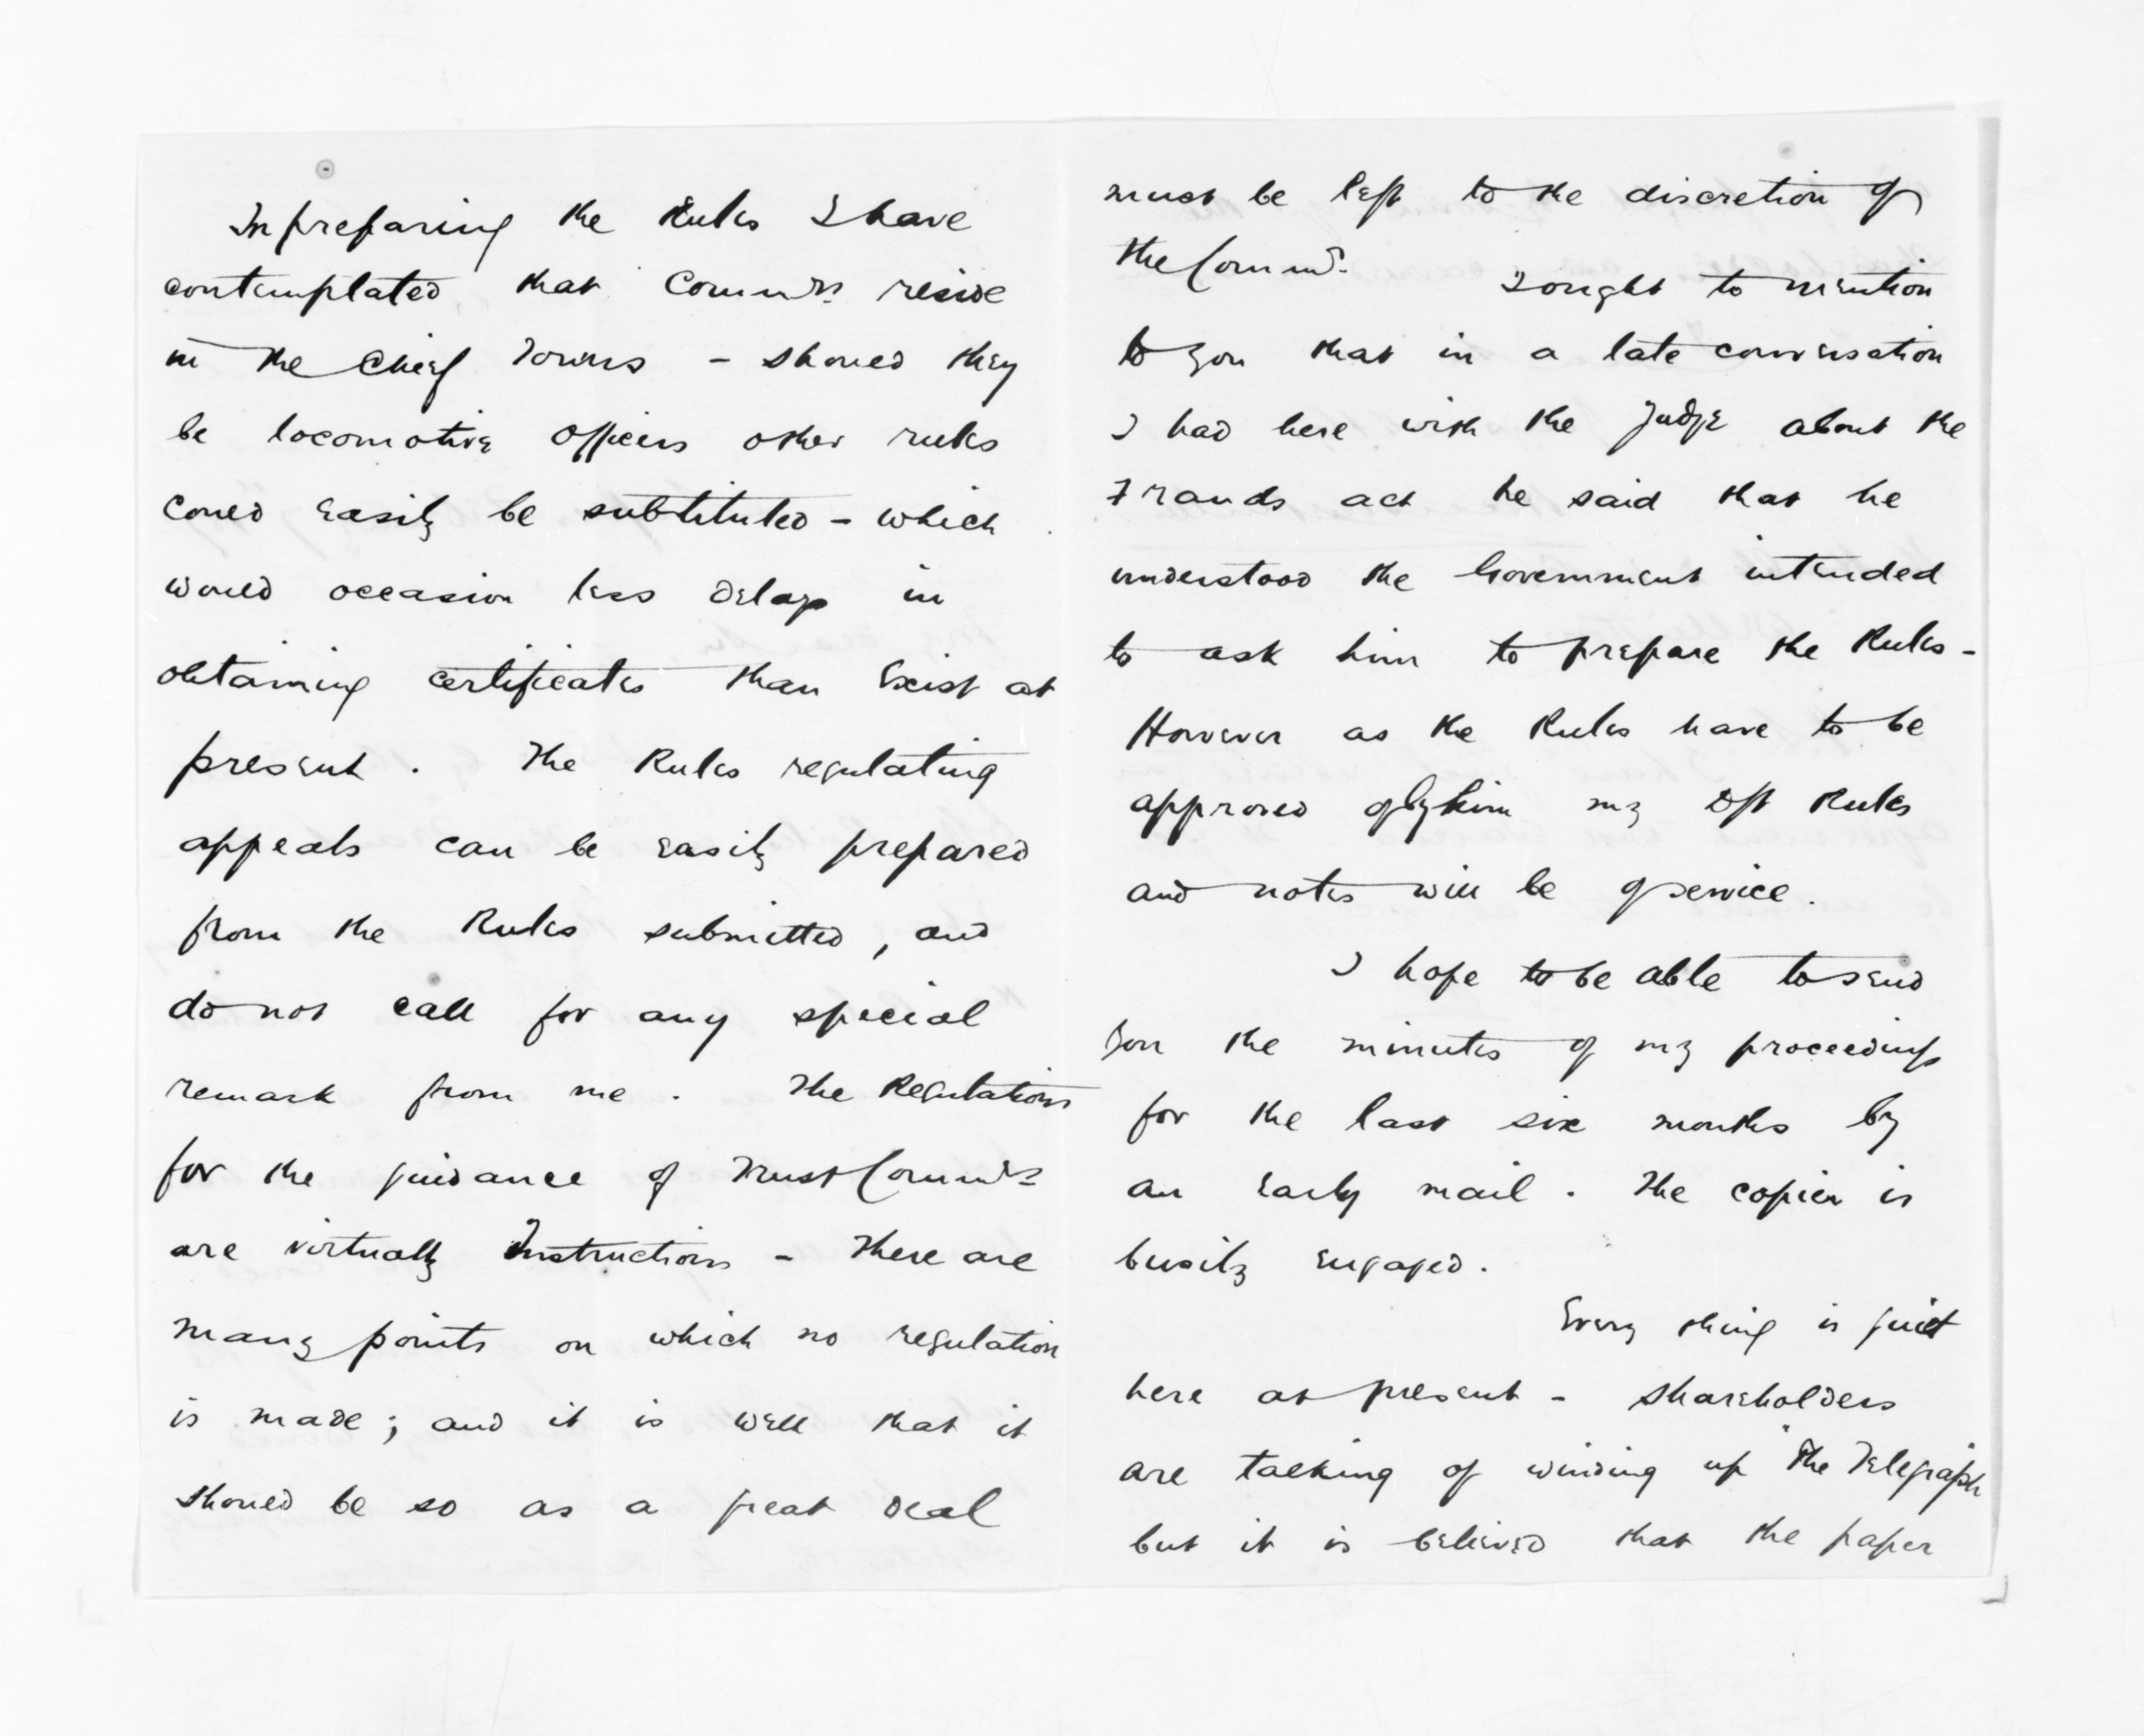 In preparing the Rules I have
contemplated that Commrs. reside
in the Chief Towns - should they
be locomotive officers other rules
could easily be substituted - which
would occasion less delay in
obtaining certificates than exist at
present. The Rules regulating
appeals can be easily prepared
from the Rules submitted, and
do not call for any special
remark from me. The Regulations
for the guidance of Trust Commrs.
are virtually Instructions - There are
many points on which no regulation
is made; and it is well that it
should be so as a great deal
must be left to the discretion of
the Commr.
I ought to mention
to you that in a late conversation
I had here with the Judge about the
Frauds act he said that he
understood the Government intended
to ask him to prepare the Rules -
However as the Rules have to be
approved of by him my Dft Rules
and notes will be of service.
I hope to be able to send
you the minutes of my proceedings
for the last six months by
an early mail. The copier is
busily engaged.
Every thing is quiet
here at present - Shareholders
are talking of winding up "The Telegraph
but it is believed that the paper